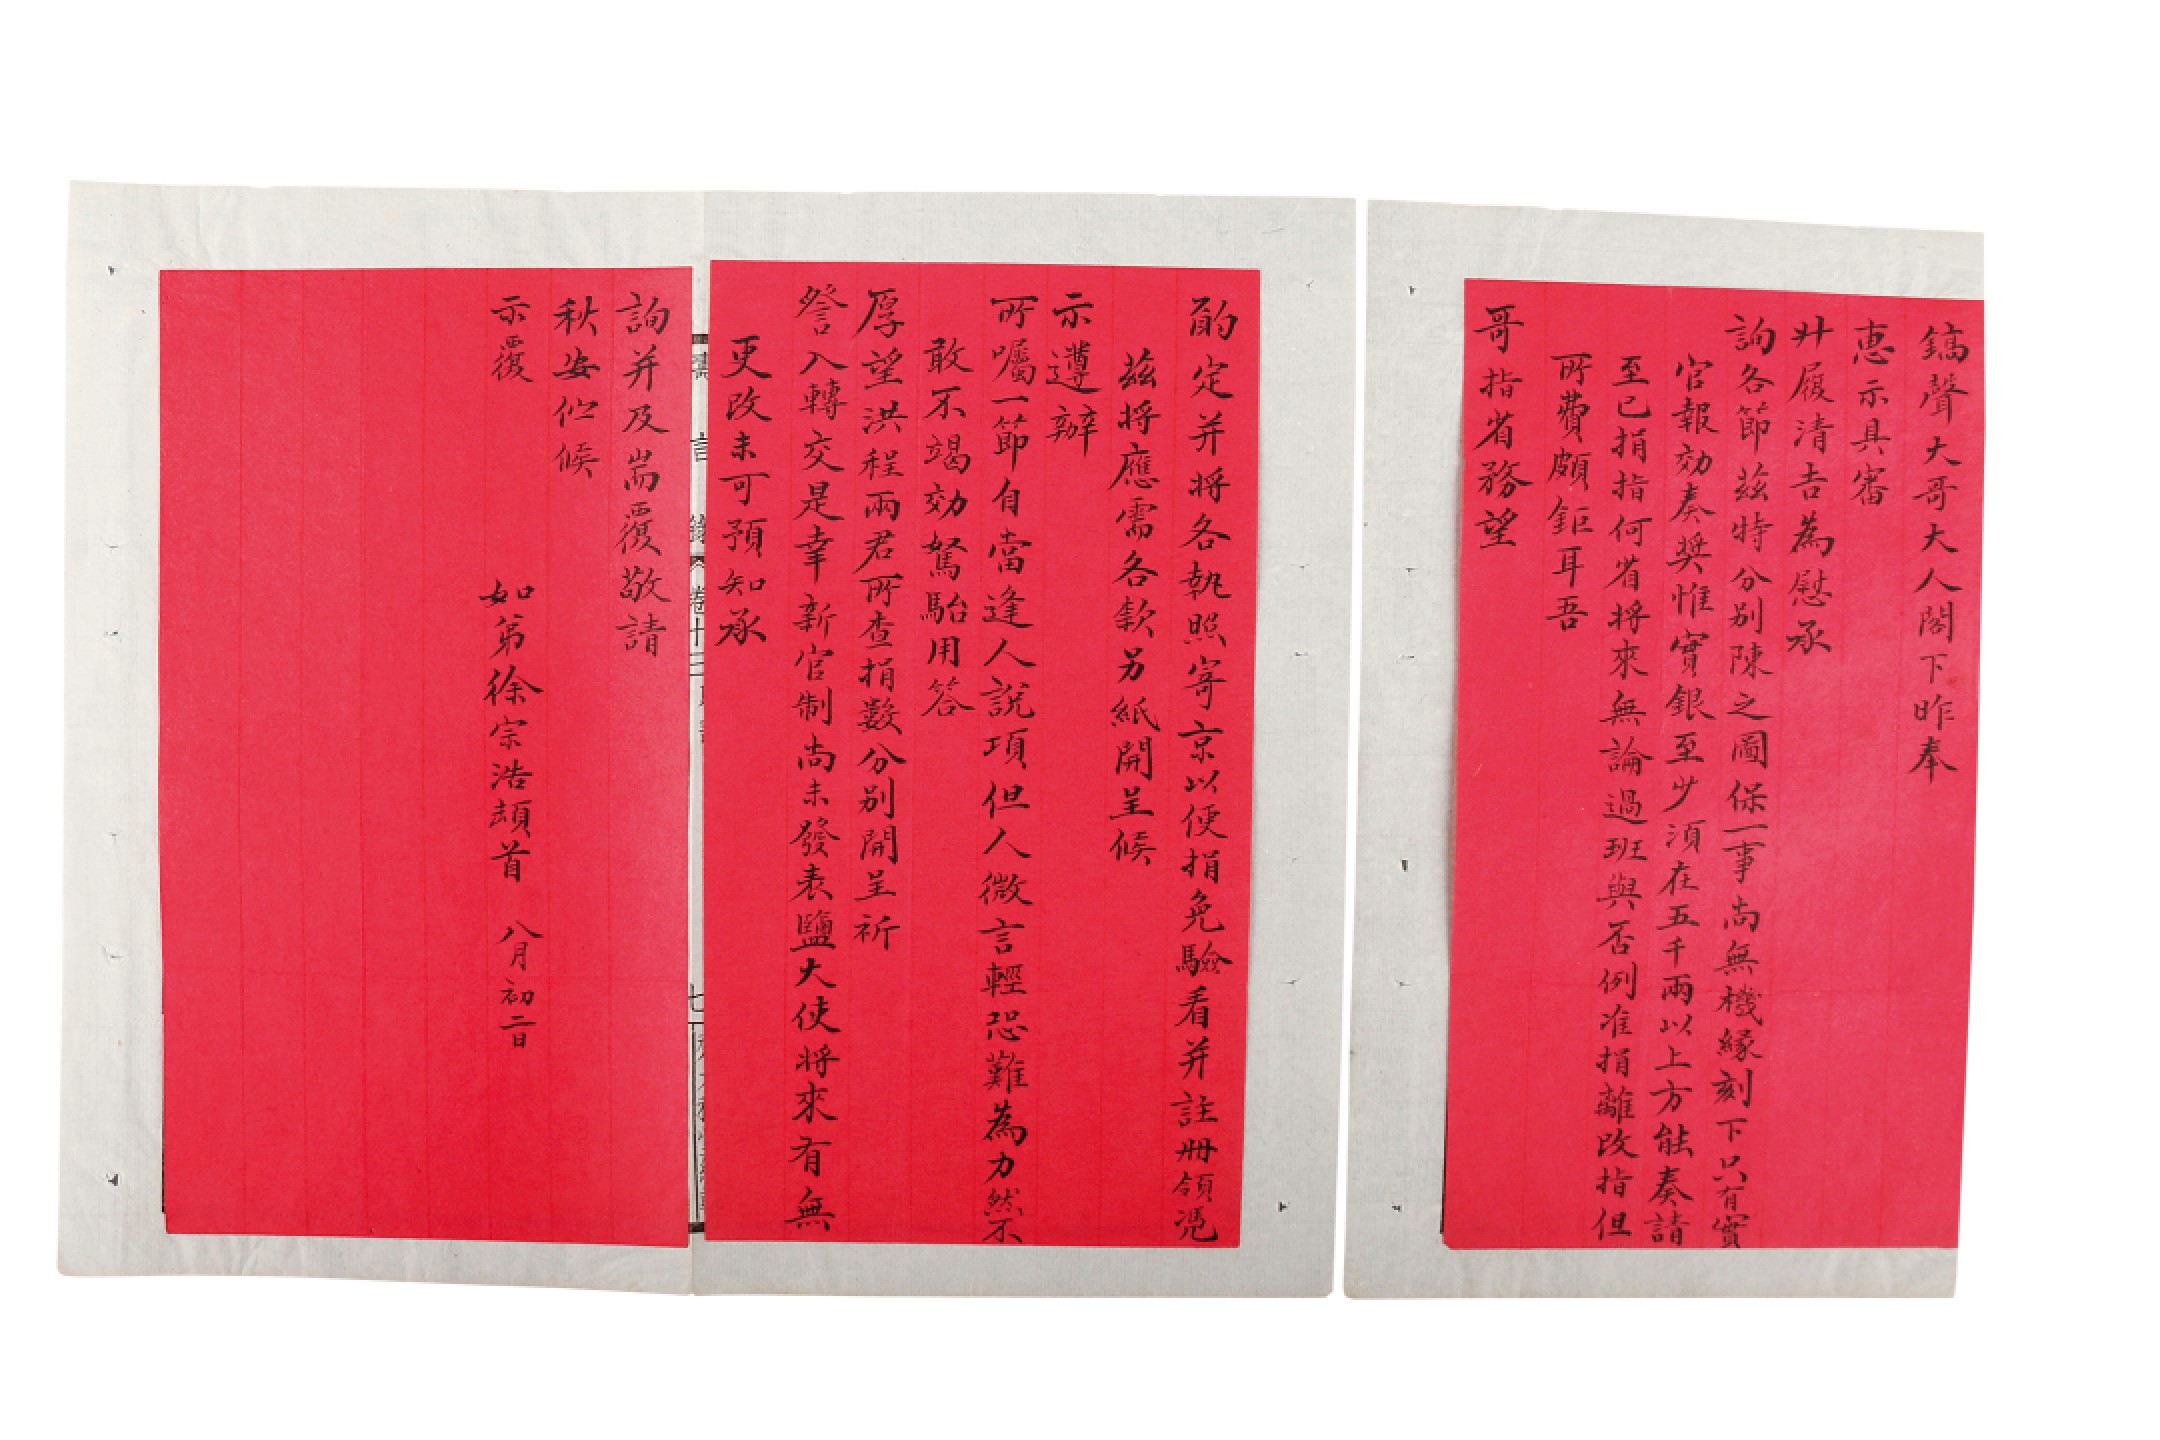 鎬聲大哥大人閣下昨奉
惠示具審
升履清吉為慰承
詢各節茲特分別陳之圖保一事尚無機緣刻下只有實
官報効奏奨惟實銀至少須在五千兩以上方能奏請
至已捐指何省將來無論過班與否例准捐離改指但
所費頗鉅耳吾
哥指省務望
酌定并將各執照寄京以便捐免驗看并註冊領凴
茲將應需各款另紙開呈候
示遵辦
所囑一節自當逢人說項但人微言輕恐難為力然不
敢不竭効駑駘用答
厚望洪程兩君所查捐数分別開呈祈
詧入轉交是幸新官制尚未發表鹽大使將來有無
更改未可預知承
詢并及耑覆敬請
秋安伫候
示覆
如弟徐宗浩頓首 八月初二日
卷十三
七